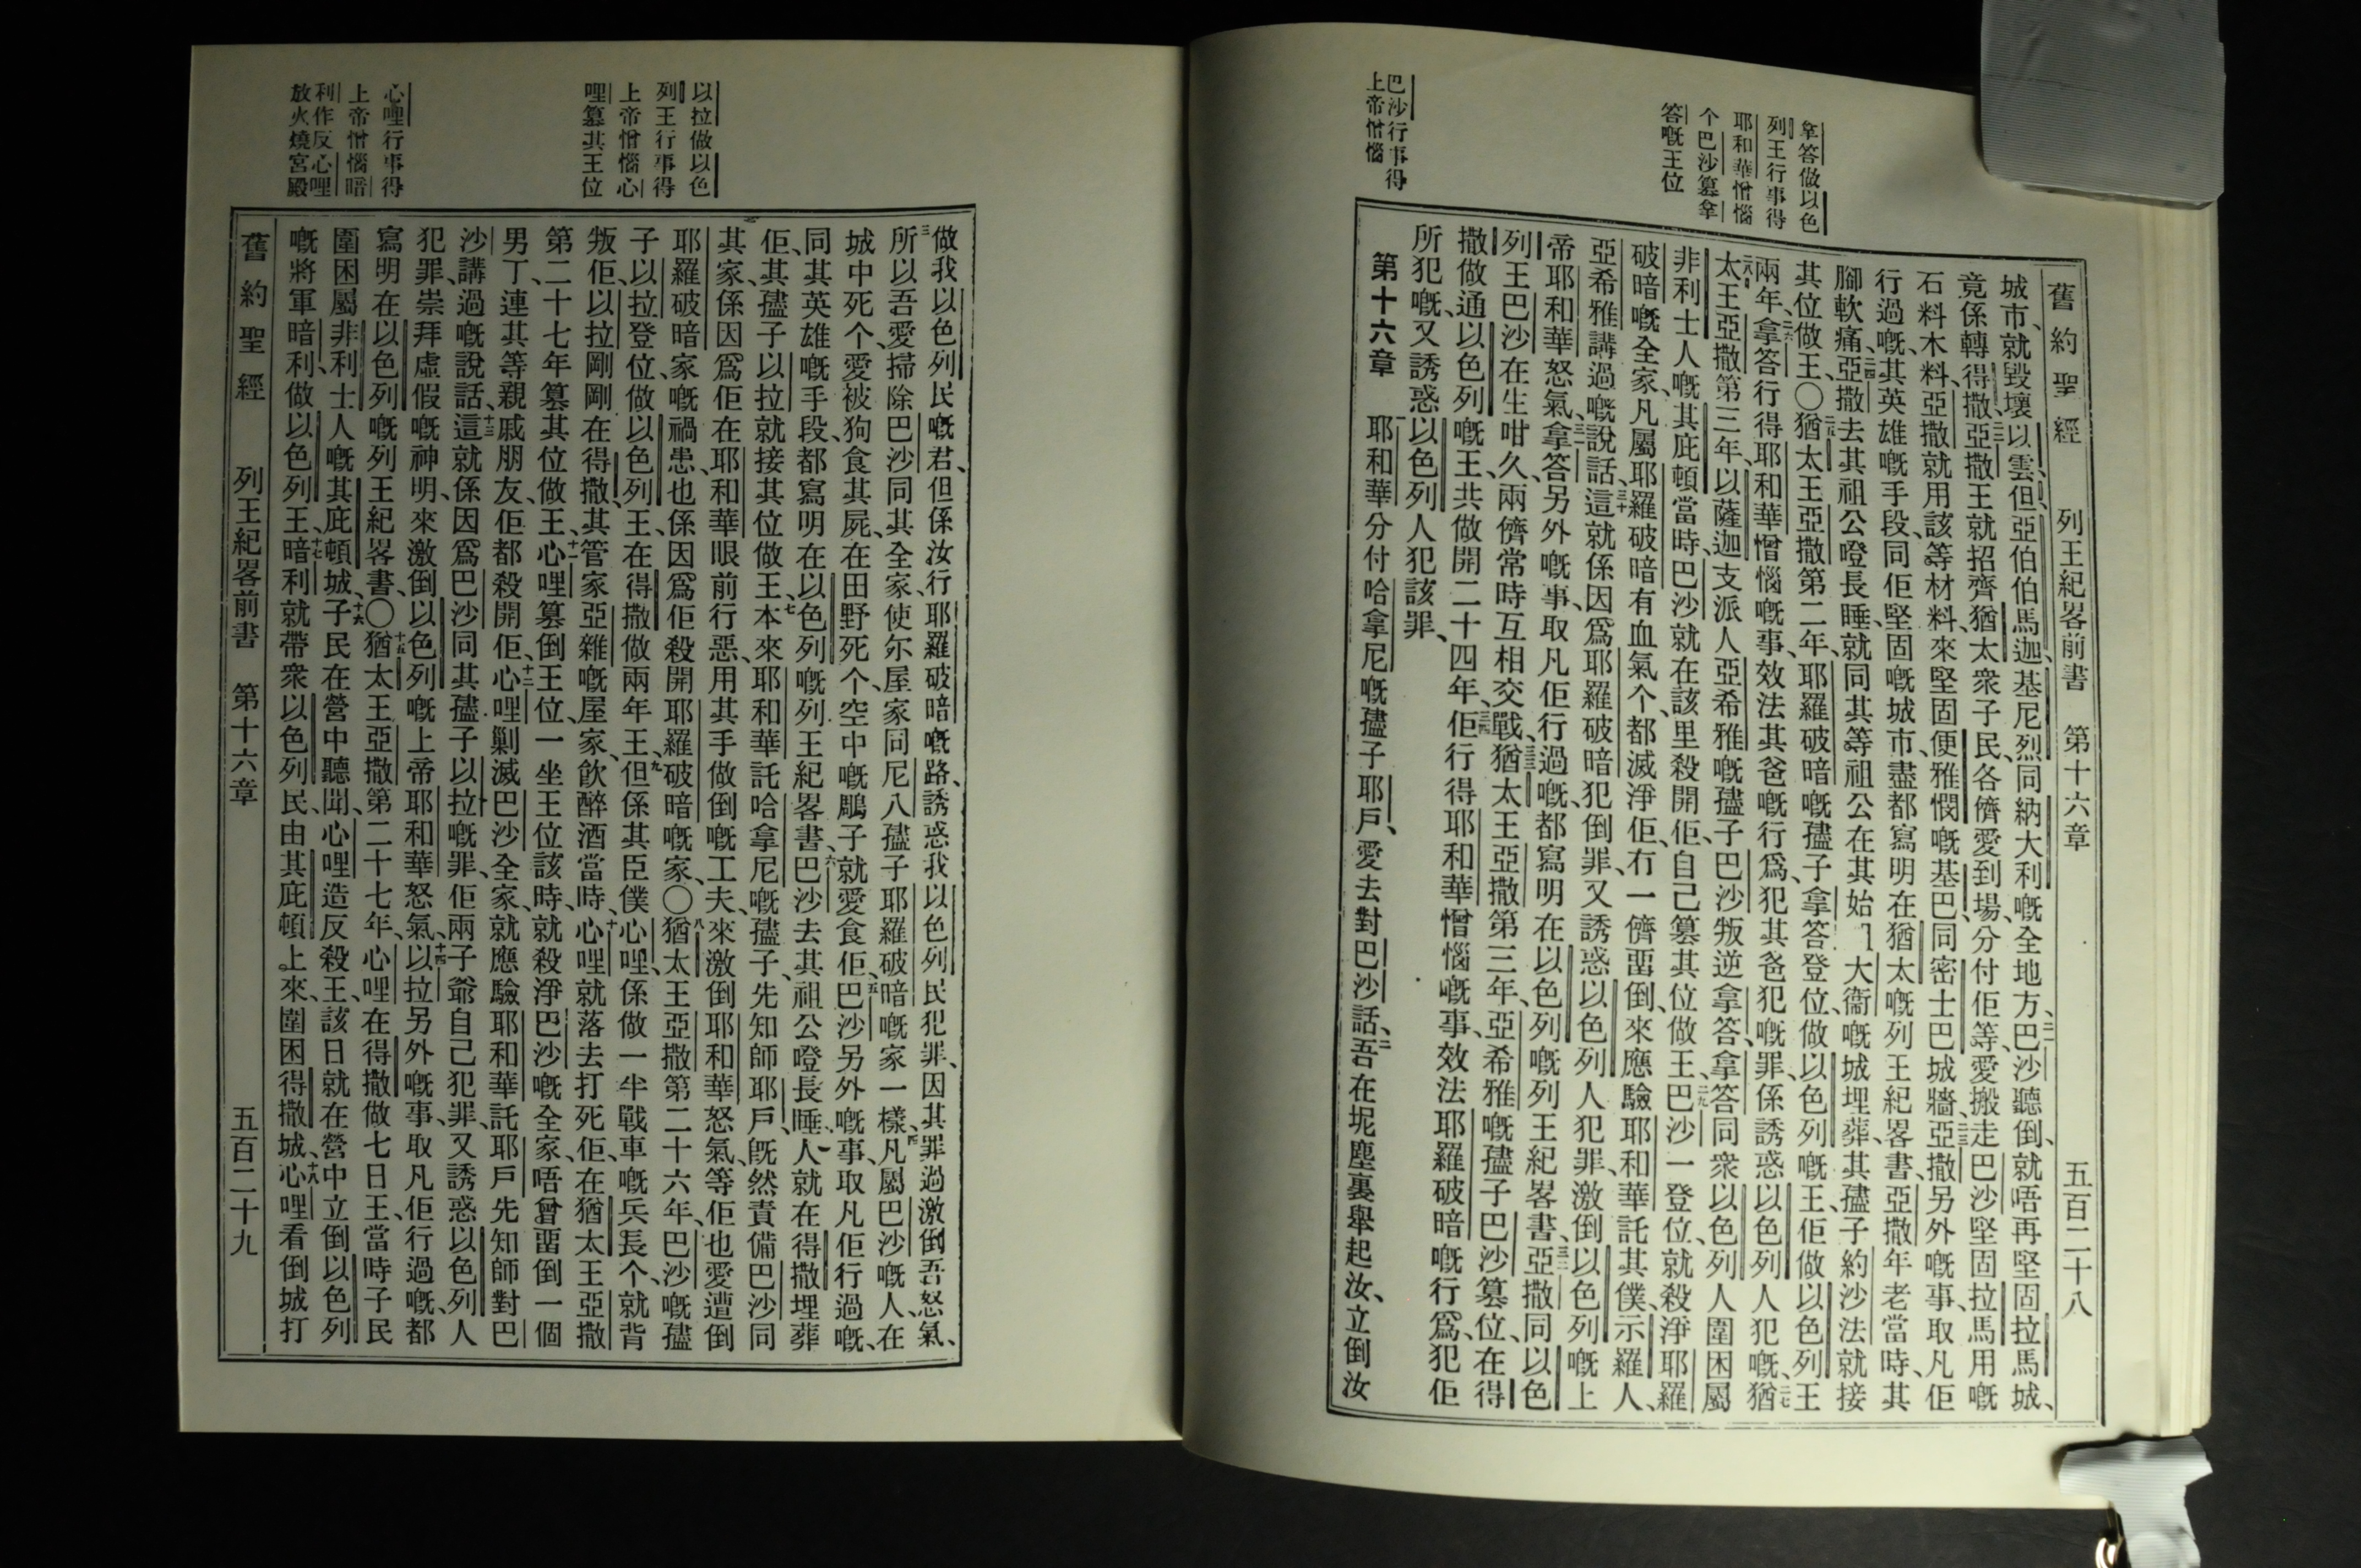 舊約聖經 列王紀畧前書 第十六章 五百二十八
拿答做以色
列王行事得
耶和華憎惱
个巴沙篡拿
答嘅王位
巴沙行事得
上帝憎惱
城市、就毀壞以雲、但、亞伯伯馬迦、基尼烈、同納大利嘅全地方、二一巴沙聽倒、就唔再堅固拉馬城、
竟係轉得撒、二二亞撒王就招齊猶太衆子民、各儕愛到場、分付佢等、愛搬走巴沙堅固拉馬用嘅
石料木料、亞撒就用該等材料、來堅固便雅憫嘅基巴、同密士巴城牆、二三亞撒另外嘅事、取凡佢
行過嘅、其英雄嘅手段、同佢堅固嘅城市、盡都寫明在猶太嘅列王紀畧書、亞撒年老當時、其
腳軟痛、二四亞撒去其祖公噔長睡、就同其等祖公在其始 大衞嘅城埋葬、其孻子約沙法就接
其位做王、〇二五猶太王亞撒第二年、耶羅破暗嘅孻子拿答登位、做以色列嘅王、佢做以色列王
兩年、二六拿答行得耶和華憎惱嘅事、效法其爸嘅行爲、犯其爸犯嘅罪、係誘惑以色列人犯嘅、二七猶
太王亞撒第三年、以薩迦支派人亞希雅嘅孻子巴沙叛逆拿答、拿答同衆以色列人圍困屬
非利士人嘅其庇頓當時、巴沙就在該里殺開佢、自己篡其位做王、二九巴沙一登位、就殺淨耶羅
破暗嘅全家、凡屬耶羅破暗有血氣个、都滅淨佢、冇一儕畱倒、來應驗耶和華託其僕、示羅人、
亞希雅講過嘅說話、三十這就係因爲耶羅破暗犯倒罪、又誘惑以色列人犯罪、激倒以色列嘅上
帝耶和華怒氣、三一拿答另外嘅事、取凡佢行過嘅、都寫明在以色列嘅列王紀畧書、三二亞撒同以色
列王巴沙在生咁久、兩儕常時互相交戰、三三猶太王亞撒第三年、亞希雅嘅孻子巴沙篡位、在得
撒做通以色列嘅王、共做開二十四年、三四佢行得耶和華憎惱嘅事、效法耶羅破暗嘅行爲、犯佢
所犯嘅、又誘惑以色列人犯該罪、
第十六章 一耶和華分付哈拿尼嘅孻子耶戶、愛去對巴沙話、二吾在坭塵裏舉起汝、立倒汝
以拉做以色
列王行事得
上帝憎惱心
哩篡其王位
心哩行事得
上帝憎惱暗
利作反心哩
放火燒宮殿
做我以色列民嘅君、但係汝行耶羅破暗嘅路、誘惑我以色列民犯罪、因其罪過激倒吾怒氣、
三所以吾愛掃除巴沙同其全家、使尓屋家同尼八孻子耶羅破暗嘅家一樣、四凡屬巴沙嘅人、在
城中死个、愛被狗食其屍、在田野死个、空中嘅鵰子就愛食佢、五巴沙另外嘅事、取凡佢行過嘅、
同其英雄嘅手段、都寫明在以色列嘅列王紀畧書、六巴沙去其祖公噔長睡、人就在得撒埋葬
佢、其孻子以拉就接其位做王、七本來耶和華託哈拿尼嘅孻子、先知師耶戶、旣然責備巴沙同
其家、係因爲佢在耶和華眼前行惡、用其手做倒嘅工夫、來激倒耶和華怒氣、等佢也愛遭倒
耶羅破暗家嘅禍患、也係因爲佢殺開耶羅破暗嘅家、〇八猶太王亞撒第二十六年、巴沙嘅孻
子以拉登位、做以色列王、在得撒做兩年王、九但係其臣僕心哩、係做一半戰車嘅兵長个、就背
叛佢、以拉剛剛在得撒、其管家亞雜嘅屋家、飮醉酒當時、十心哩就落去打死佢、在猶太王亞撒
第二十七年篡其位做王、十一心哩篡倒王位、一坐王位該時、就殺淨巴沙嘅全家、唔曾畱倒一個
男丁、連其等親戚朋友、佢都殺開佢、十二心哩剿滅巴沙全家、就應驗耶和華託耶戶先知師對巴
沙講過嘅說話、十三這就係因爲巴沙同其孻子以拉嘅罪、佢兩子爺自己犯罪、又誘惑以色列人
犯罪、崇拜虛假嘅神明、來激倒以色列嘅上帝耶和華怒氣、十四以拉另外嘅事、取凡佢行過嘅、都
寫明在以色列嘅列王紀畧書、〇十五猶太王亞撒第二十七年、心哩在得撒做七日王、當時子民
圍困屬非利士人嘅其庇頓城、十六子民在營中聽聞、心哩造反殺王、該日就在營中立倒以色列
嘅將軍暗利、做以色列王、十七暗利就帶衆以色列民、由其庇頓上來、圍困得撒城、十八心哩看倒城打
舊約聖經 列王紀畧前書 第十六章 五百二十九